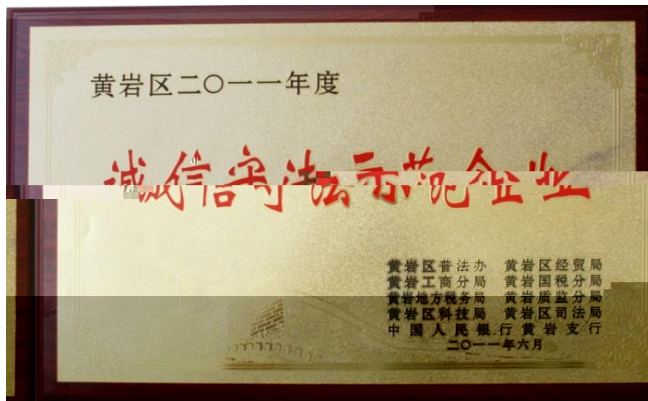 黄岩区二〇一一年度
诚信守法示范企业
黄岩区普法办 黄岩区经贸局
黄岩工商分局 黄岩国税分局
黄岩地方税务局 黄岩质监分局
黄岩区科技局 黄岩区司法局
中国人民银行黄岩支行
二〇一一年六月